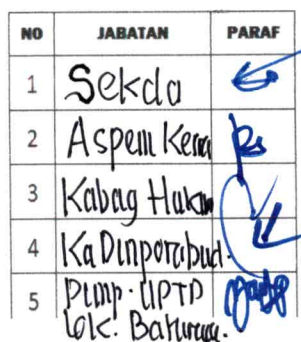 NO JABATAN PARAF
1 Sekda
2 Aspem Kesra
3 Kabag Hukum
4 Ka Dinporabud.
5 Pimp. UPTD
Lok.